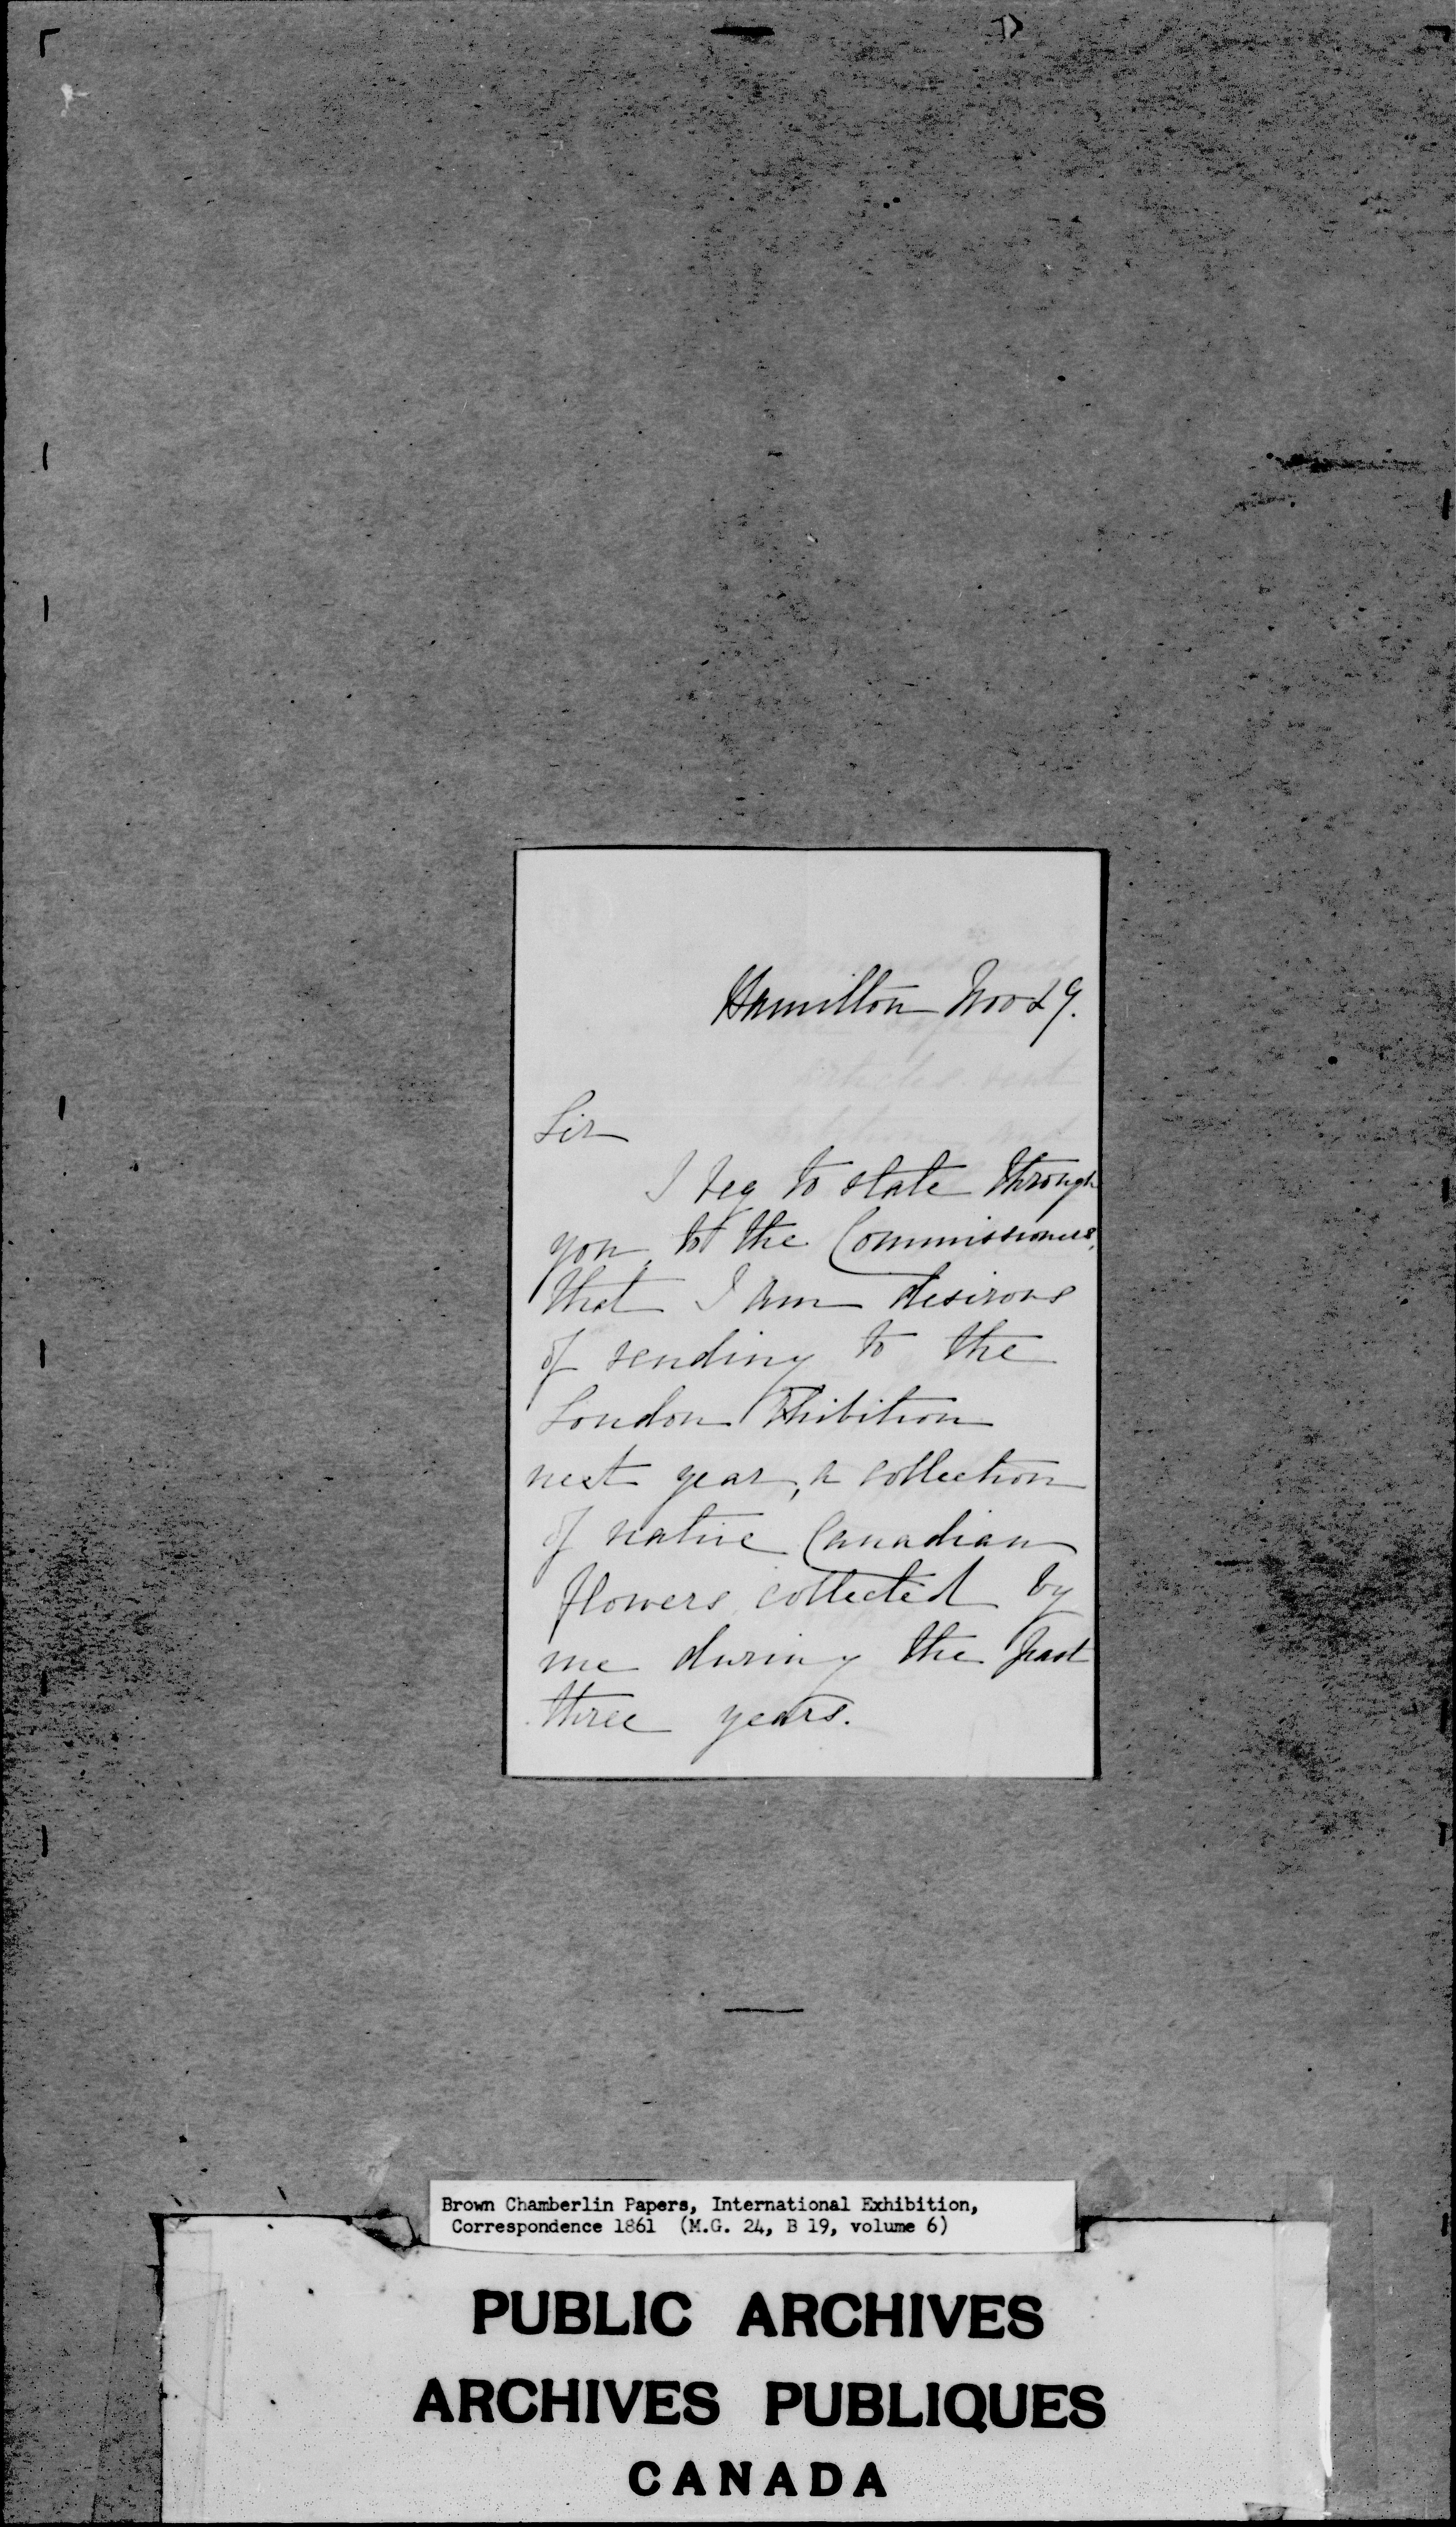 Hamilton Nov 29.
Sir
I beg to state through
you to the Commissioners,
that I am desirous
of sending to the
London Exhibition
next year, a collection
of native Canadian
flowers collected by
me during the past
three years.
Brown Chamberlin Papers, International Exhibition,
Correspondence 1861 (M.G. 24, B 19, volume 6)
PUBLIC ARCHIVES
ARCHIVES PUBLIQUES
CANADA